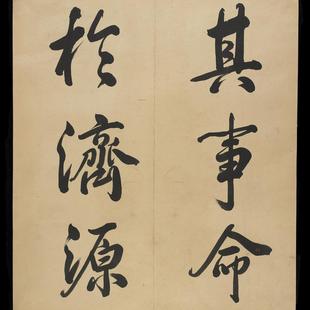 其事命
於濟源